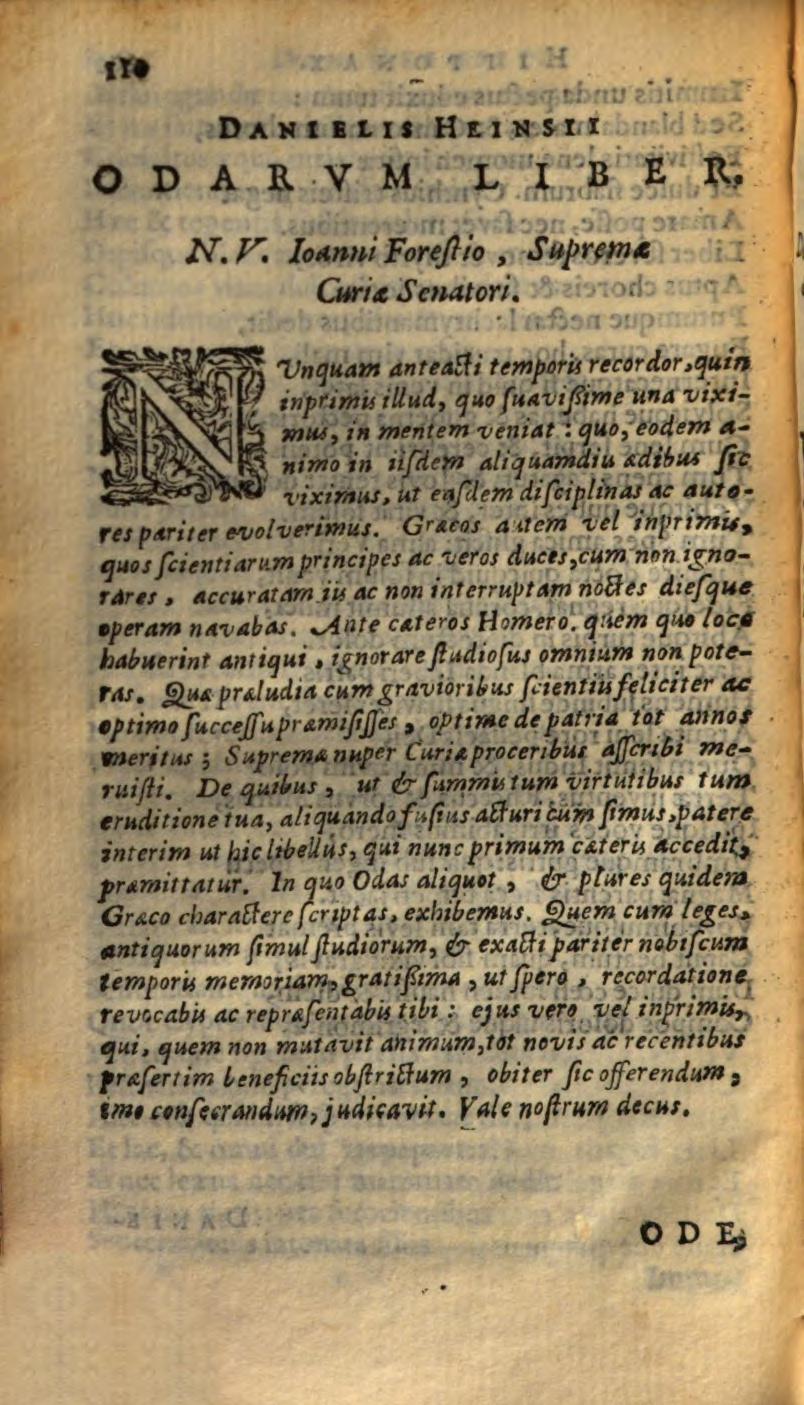 110
DANIELIS HEINSII
ODARVM LIBER.
N. V. Ioanni Foreſtio, Supremæ
Curiæ Senatori.
NVnquam anteacti temporis recordor, quin
inprimis illud, quo ſuaviſſime una vixi-
mus, in mentem veniat: quo, eodem a-
nimo in iiſdem aliquamdiu ædibus ſic
viximus, ut eaſdem diſciplinas ac auto-
res pariter evolverimus. Græcos autem vel inprimis,
quos ſcientiarum principes ac veros duces, cum non igno-
rares, accuratam iis ac non interruptam noctes dieſque
operam navabas. Ante cæteros Homero. quem quo loco
habuerint antiqui, ignorare ſtudioſus omnium non pote-
ras. Quæ præludia cum gravioribus ſcientiis feliciter ac
optimo ſucceſſu præmiſiſſes, optime de patria tot annos
meritus; Supremæ nuper Curiæ proceribus aſſcribi me-
ruiſti. De quibus, ut & ſummis tum virtutibus tum
eruditione tua, aliquando fuſius acturi cùm ſimus, patere
interim ut hic libellus, qui nunc primum cæteris accedit,
præmittatur. In quo Odas aliquot, & plures quidem
Græco charactere ſcriptas, exhibemus. Quem cum leges,
antiquorum ſimul ſtudiorum, & exacti pariter nobiſcum
temporis memoriam, gratiſſima, ut ſpero, recordatione
revocabis ac repræſentabis tibi: ejus vero vel inprimis,
qui, quem non mutavit animum, tot novis ac recentibus
præſertim beneficiis obſtrictum, obiter ſic offerendum,
imo conſecrandum, judicavit. Vale noſtrum decus.
ODE,